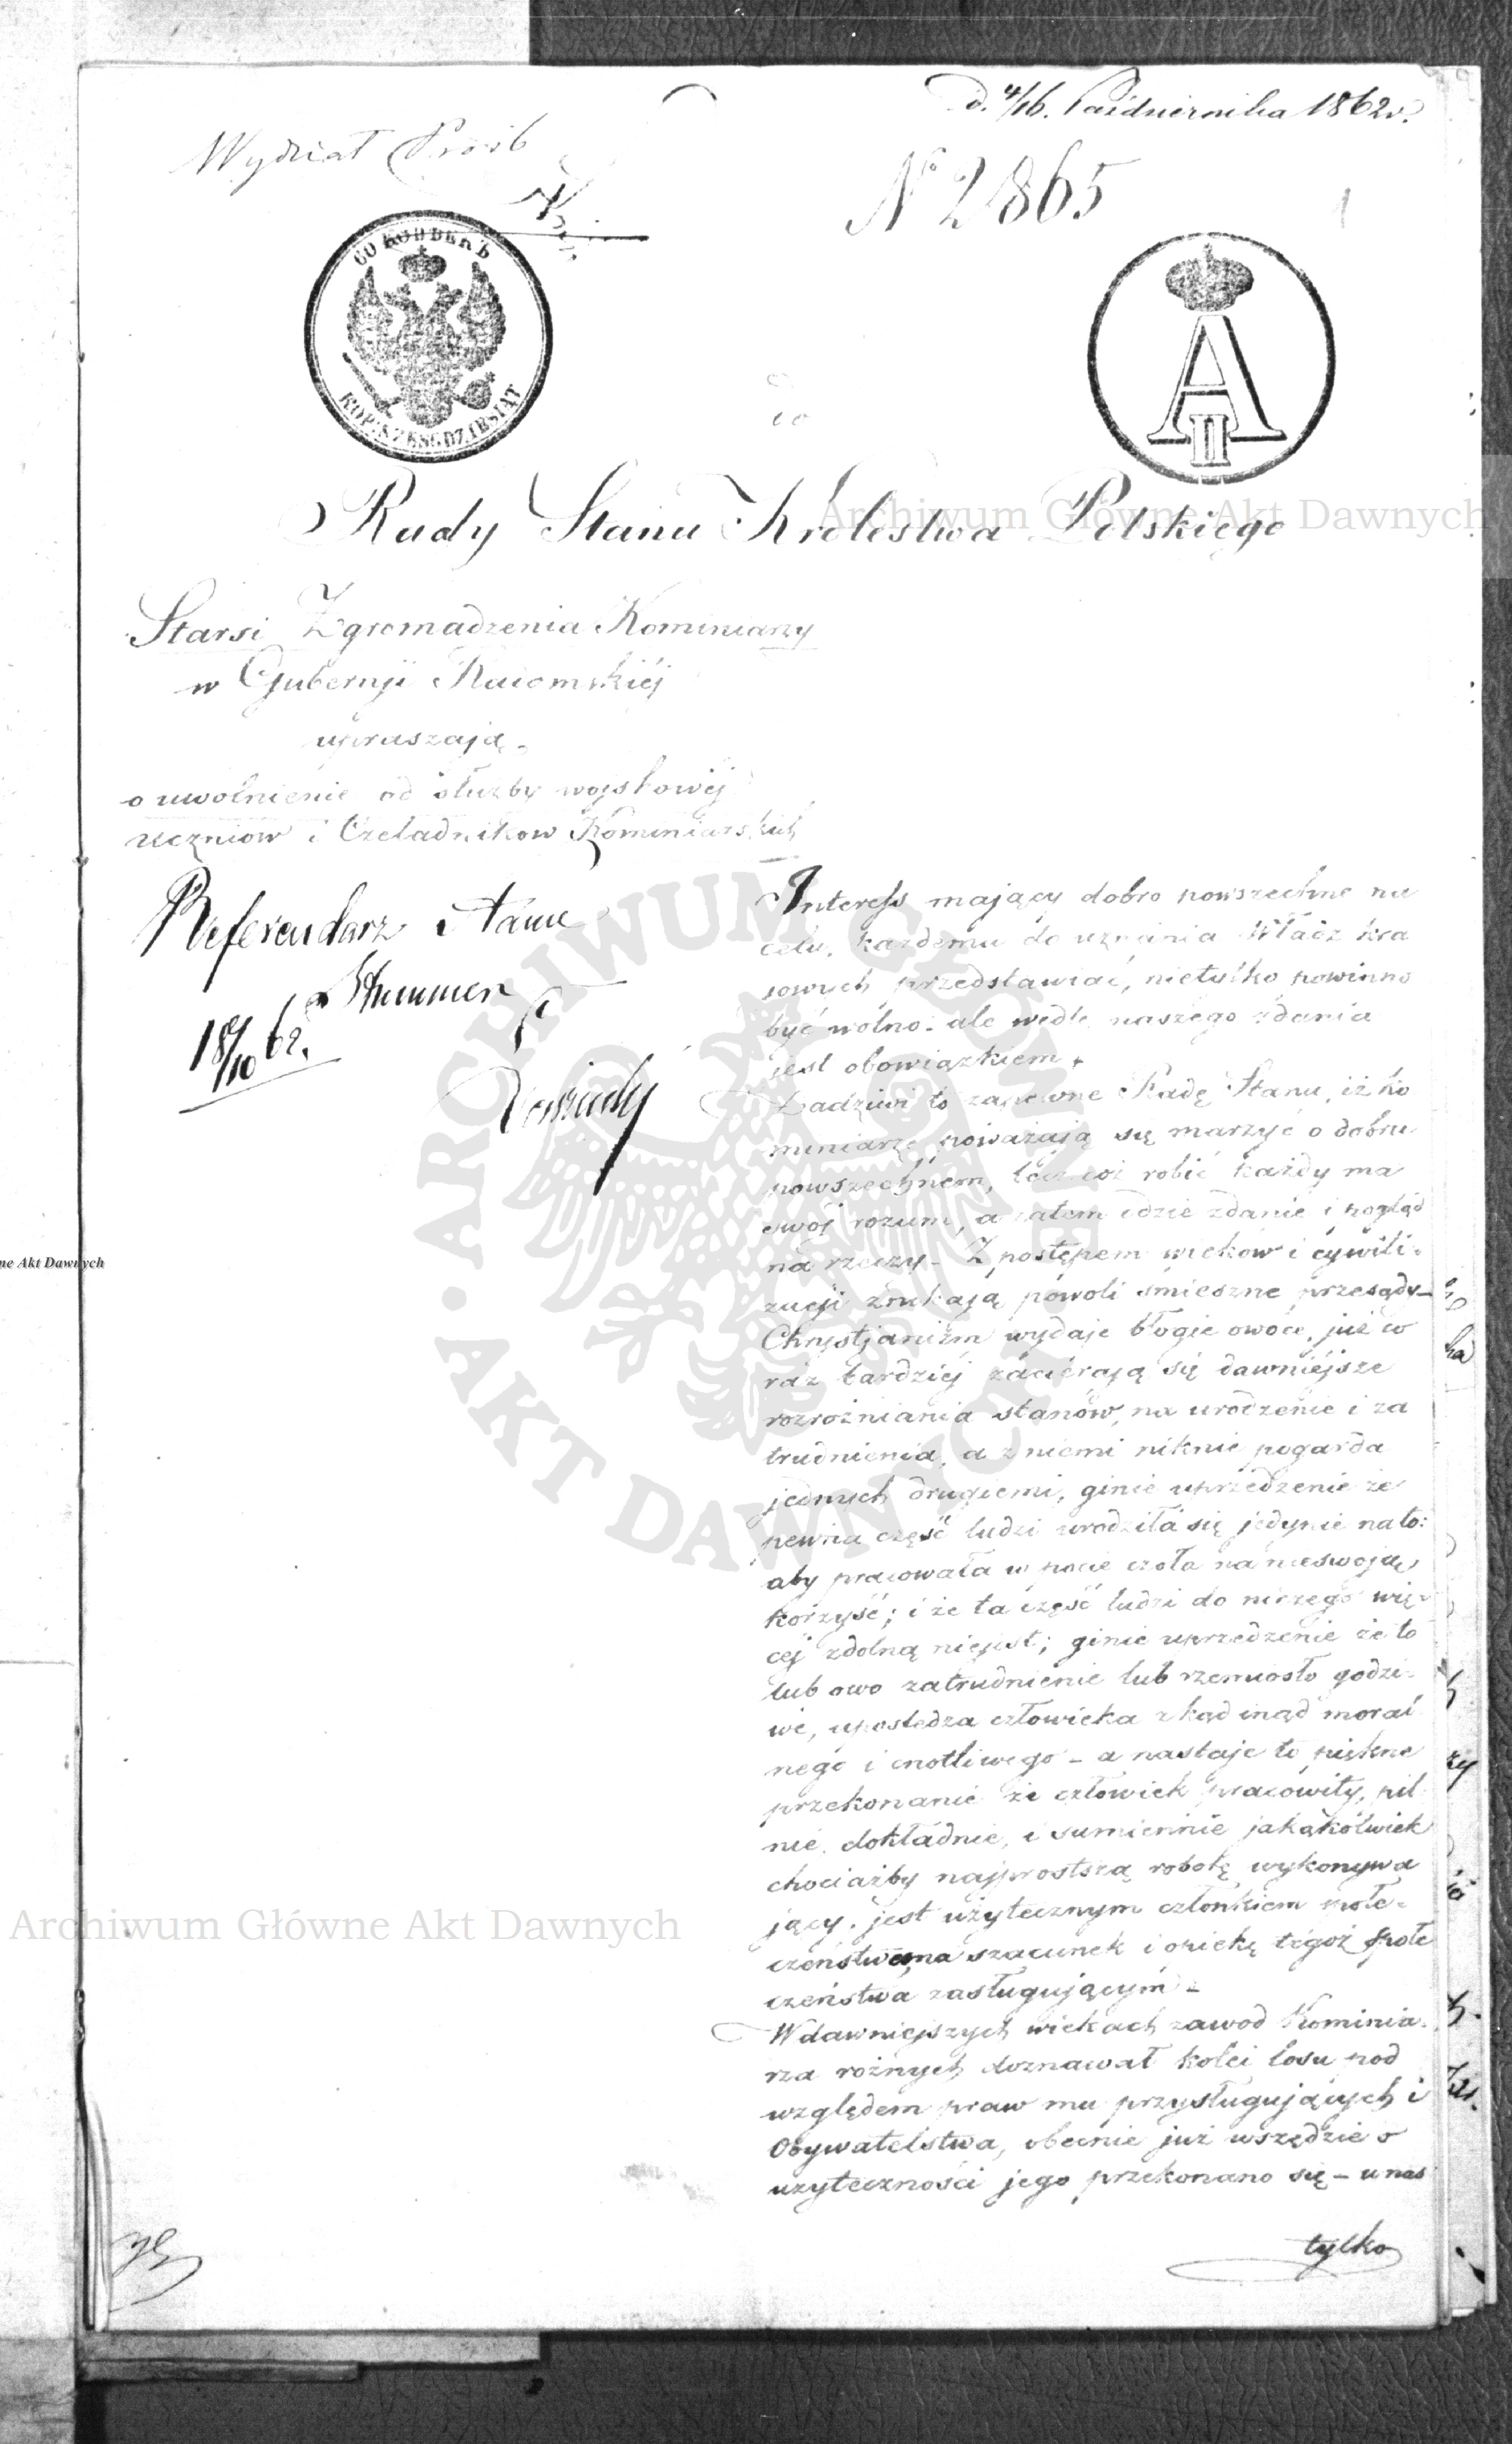 d. 4/16. Października 1862 r.
Wydział Próśb
N° 2865
60 КОПѢЕКЪ
KOP: SZEŚĆDZIESIĄT
A II
Do
Rady Stanu Królestwa Polskiego
Starsi Zgromadzenia Kominiarzy
w Gubernji Radomskiéj
upraszają
o uwolnienie od służby wojskowéj
uczniów i Czeladników Kominiarskich
Referendarz Stanu
Stummer
18/10 62.
Interess mający dobro powszechne na
celu, każdemu do uznania Władz kra
jowych przedstawiać, nietylko powinno
być wolno. ale wedle naszego zdania
jest obowiązkiem.
Zadziwi to zapewne Radę Stanu, iż ko
miniarze poważają się marzyć o dobru
powszechnem, lecz cóż robić każdy ma
swój rozum, a zatem idzie zdanie i pogląd
na rzeczy – Z postępem wieków i cywili-
zacji znikają powoli śmieszne przesądy –
Chrystjanizm wydaje błogie owoce, już co
raz bardziéj zacierają się dawniejsze
rozróżniania stanów, na urodzenie i za
trudnienia, a z niemi niknie pogarda
jednych drugiemi, ginie uprzedzenie że
pewna część ludzi urodziła się jedynie nato:
aby pracowała w pocie czoła na nieswoją
korzyść; i że ta część ludzi do niczego wię-
cej zdolną niejest; ginie uprzedzenie że to
lub owo zatrudnienie lub rzemiosło godzi-
we, upośledza człowieka z kąd inąd moral
nego i cnotliwego – a nastaje to piękne
przekonanie że człowiek pracowity, pil
nie, dokładnie, i sumiennie jakąkolwiek
chociażby najprostszą robotę wykonywa
jący. jest użytecznym członkiem społe-
czeństwa, na szacunek i opiekę tegoż społe
czeństwa zasługującym –
W dawniejszych wiekach zawód Kominia-
rza różnych doznawał kolei losu pod
względem praw mu przysługujących i
Obywatelstwa, obecnie już wszędzie o
użyteczności jego przekonano się – u nas
tylko
Archiwum Główne Akt Dawnych
ne Akt Dawnych
ARCHIWUM GŁÓWNE • AKT DAWNYCH •
Archiwum Główne Akt Dawnych